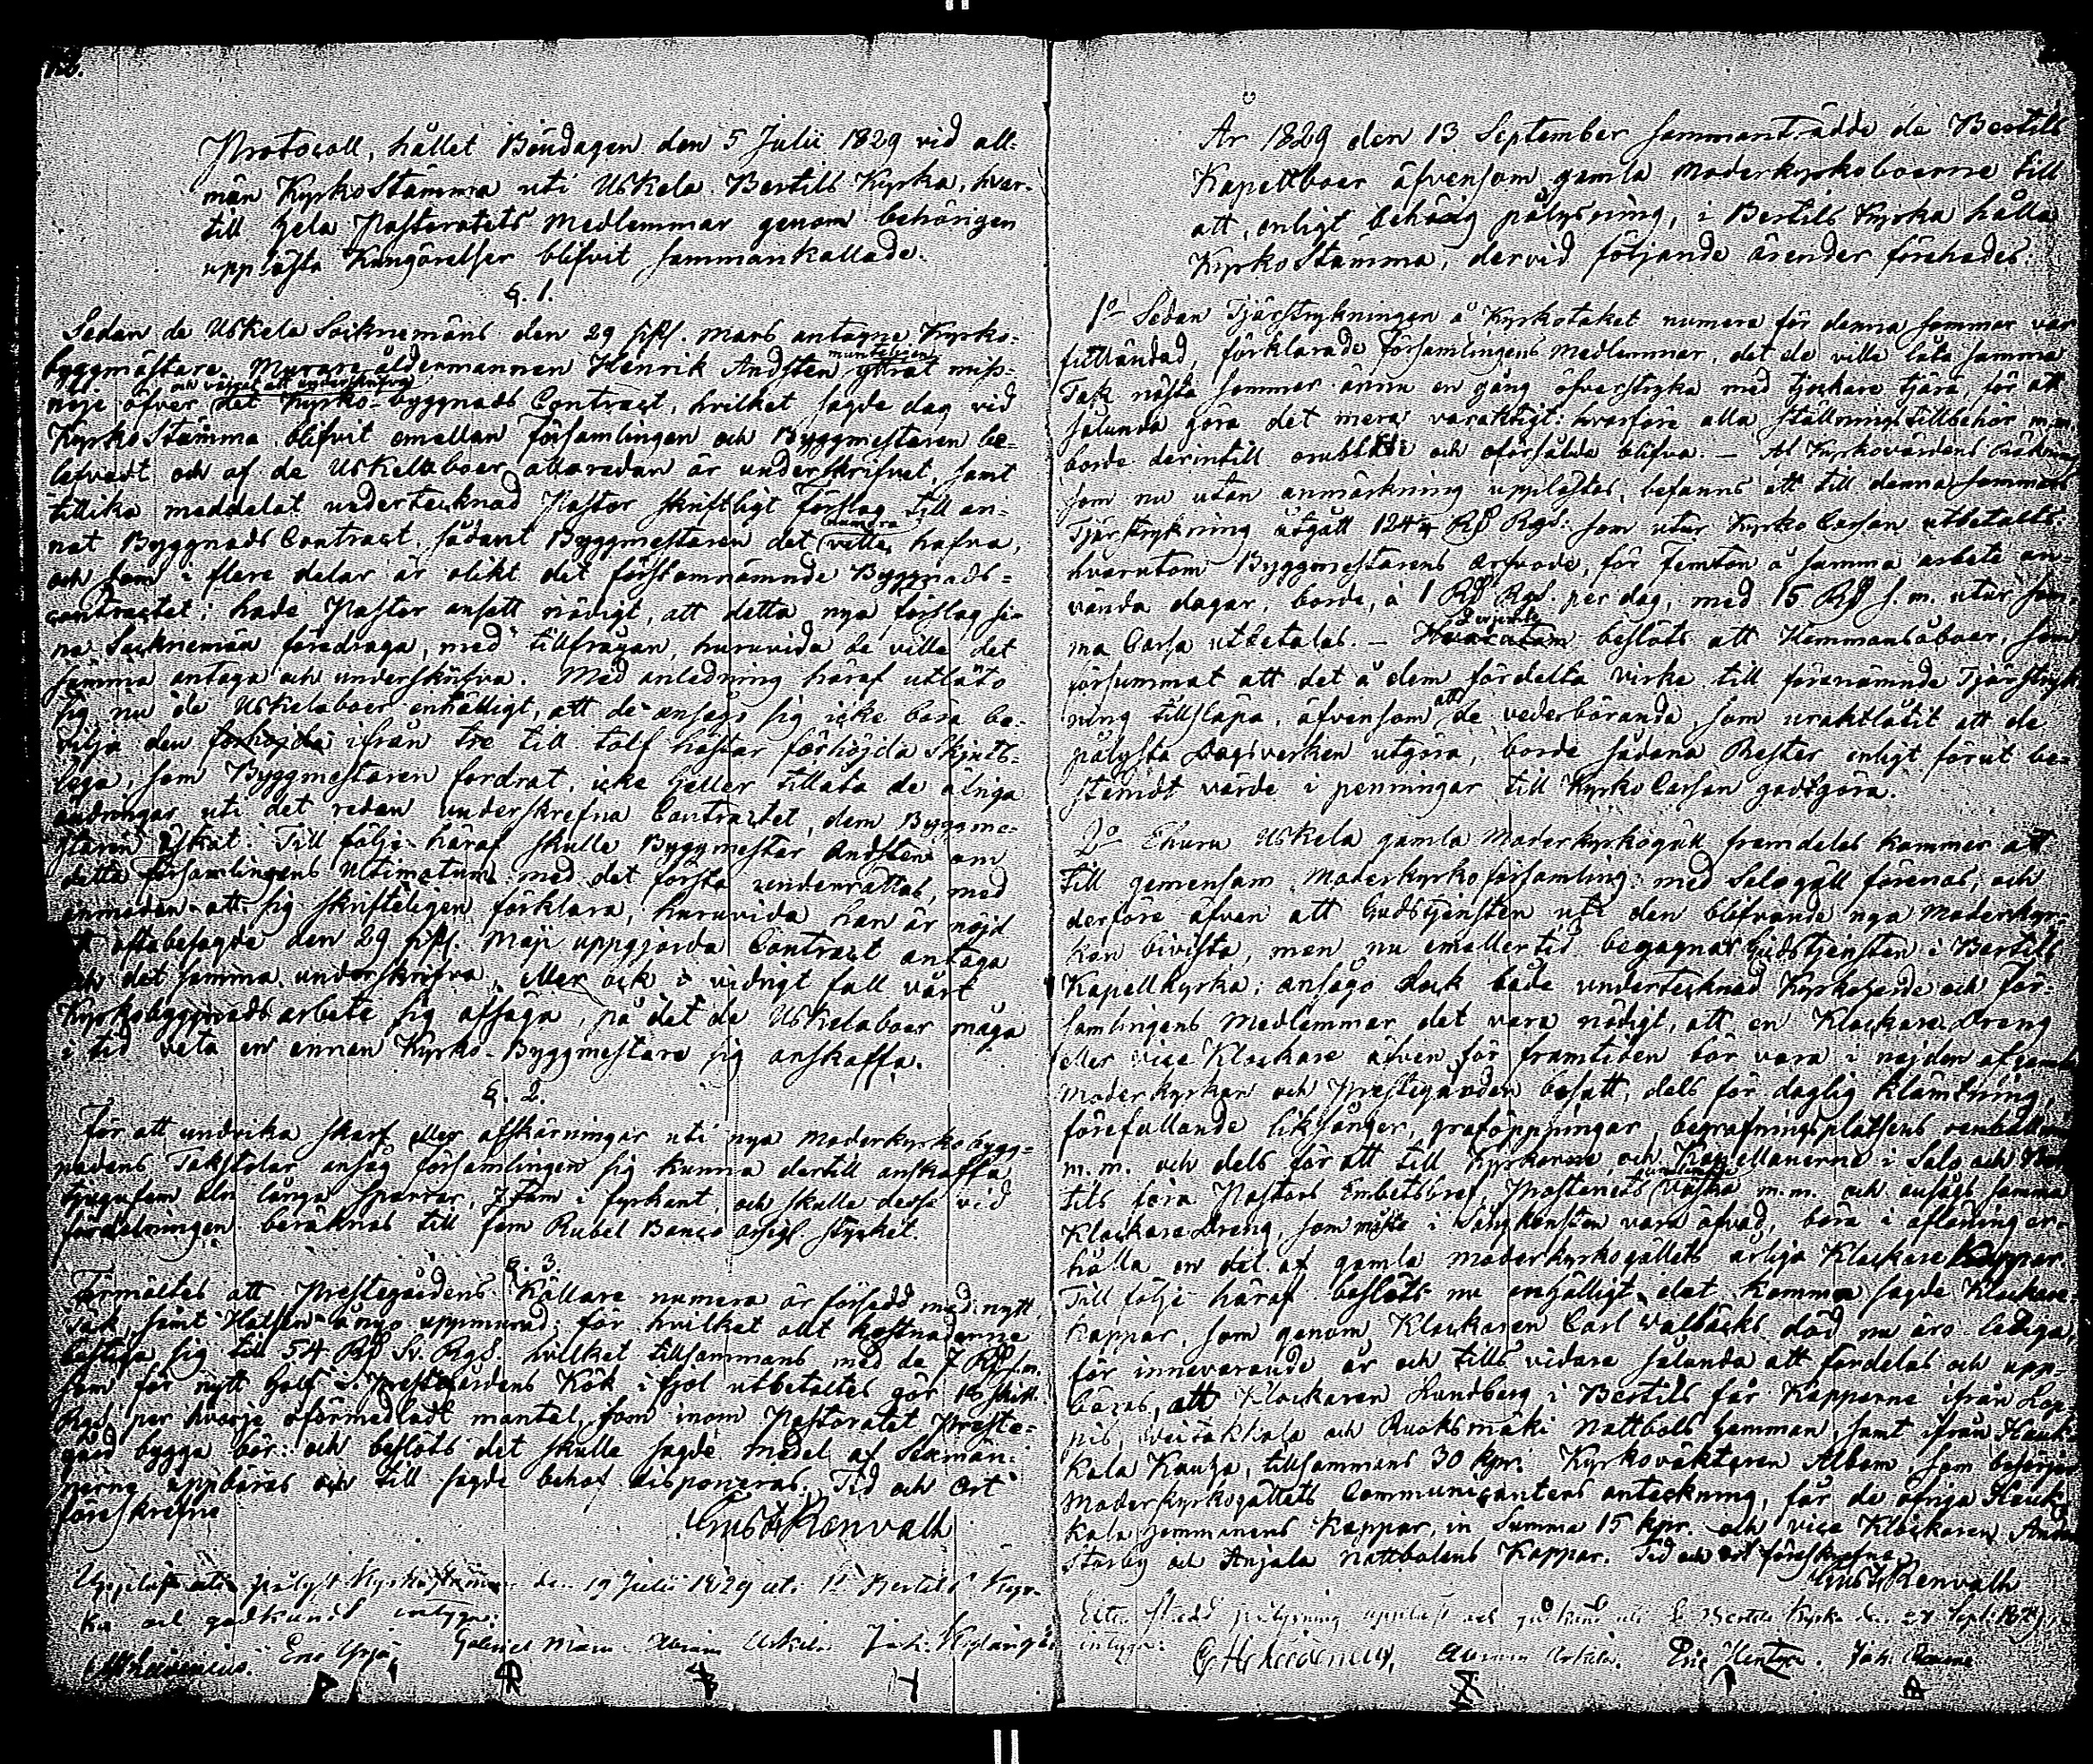 Protocoll, hållet Böndagen den 5 Julii 1829 vid all-
män Kyrkostämma uti Uskela Bertils Kyrka, hvar-
till hela Pastoratets Medlemmar genom behörigen
upplästa Kungörelser blifvit sammankallade.
§. 1.
Sedan de Uskela Socknemäns den 29 sistl. Mars antagne Kyrko-
byggmästare, Murare åldermannen Henrik Andsten muntligen yttrat miss-
nöje öfver och vägrat att underskrifva det Kyrko-byggnads Contract, hvilket sagde dag vid
KyrkoStämma blifvit emellan församlingen och Byggmestaren be-
lefvadt och af de Uskelaboer allaredan är underskrifvet, samt
tillika meddelat undertecknad Pastor skriftligt förslag till an-
nat Byggnads Contract, sådant Byggmestaren det numera ville hafva,
och som i flere delar är olikt det förstomnämnde Byggnads-
contractet; hade Pastor ansett nödigt, att detta nya förslag si-
na Socknemänföredraga, med tillfrågan, huruvida de ville det
samma antaga och underskrifva. Med anledning häraf utläto
sig nu de Uskelaboer enhälligt, att de ansågo sig icke böra be-
vilja den förhöjda ifrån tre till tolf hästar förhöjda Skjuts-
lega, som Byggmestaren fordrat, icke heller tillåta de öfriga
ändringar uti det redan underskrefna Contractet, dem Byggme-
staren äskat. Till följe häraf skulle Byggmestar Andsten om
detta församlingens Ultimatum med det första underrättas, med
anmodan att sig skrifteligen förklara, huruvida han är nöjd
oftabesagde den 29 sistl. Maji uppgjorda Contract antaga
och det samma underskrifva, eller ock i vidrigt fall vårt
Kyrkobyggnads arbete sig afsäga, på det de Uskelaboer måga
i tid veta en annan Kyrko-Byggmestare sig anskaffa.
§. 2.
För att undvika skarf eller afskärningar uti nya Moderkyrkobygg-
nadens Takstolar ansåg församlingen sig kunna dertill anskaffa
tjugufem aln långa sparrar, 7 tum i fyrkant, och skulle desse vid
fördelningen beräknas till fem Rubel Banco assigl. stycket.
§. 3.
Förmältes att Prestegårdens Källare numera är försedd med nytt
tak, samt Halsen å nyo uppmurad: för hvilket allt kostnaderne
bestiga sig till 54 Rd Sv. Rgs. hvilket tillsammans med de 7 Rd s.m.
som för nytt golf i Prestgårdens Kök i fjol utbetaltes gör 18 skill.
Rgs per hvarje oförmedladt mantal, som inom Pastoratet Preste-
gård bygga bör: och beslöts det skulle sagde medel af Sexmän-
nerna uppbäras och till sagde behof disponeras. Tid och Ort
föreskrefne
Gust. Renvall
Uppläst uti pålyst Kyrkostämma den 19 Julii 1829 uti St Bertils Kyr-
ka och godkändt intyga:
Eric Yrjä, Gabriel Abram Uskela Joh.
År 1829 den 13 September sammanträdde de Bertils
Kapellboer äfvensom gamla Moderkyrkoboerne till
att, enligt behörig pålysning, i Bertils Kyrka hålla
KyrkoStämma, dervid följande ärender förehades:
1o Sedan Tjärstrykningen å Kyrkotaket numera för denna sommar var
fulländad, förklarade församlingens Medlemmar, det de ville låta samma
Tak nästa sommar ännu en gång öfverstryka med tjockare tjära, för att
sålunda göra det mera varaktigt: hvarföre alla Ställningstillbehör m.m.
borde derintill orubbade och oförsålde blifva. — Af Kyrkovärdens Räkning
som nu utan anmärkning upplästes, befanns att till denna sommars
Tjärstrykning åtgått 124 Rd Rgs: som utur Kyrko Cassan utbetalts:
hvarutom Byggmestarens arfvode, för femton å samma arbete an-
vända dagar, borde, à 1 Rd Rgs. per dag, med 15 Rd s.m. utur sam-
ma Cassa utbetalas. — Hvarutom beslöts att Hemmansåboer, som
försummat att det å dem fördelta virke till förenämnde Tjärstryk-
ning tillsläpa, äfvensom att de vederbörande som uraktlåtit att de
pålysta Dagsverken utgöra, borde sådana Rester enligt förut be-
stämdt värde i penningar till Kyrko Cassan godtgöra.
2o Ehuru Uskela gamla Moderkyrkogäll framdeles kommer att
till gemensam Moderkyrkoförsamling med Salogäll förenas, och
derföre äfven att Gudstjensten uti den blifvande nya Moderkyr-
kan bivista, men nu emellertid begagnar Gudstjensten i Bertils
Kapellkyrka; ansågo dock både undertecknad Kyrkoherde och För-
samlingens Medlemmar det vara nödigt, att en Klockare Dreng
eller vice Klockare äfven för framtiden bör vara i nejden af gamla
Moderkyrkan och Prestegården bosatt, dels för daglig klämtning,
förefallande liksånger, graföppningar, begrafningsplatsens renhållning
m.m. och dels för att till Kyrkorne och Kapellanerne i Salo och Ber-
tils föra Pastors Embetsbref, Pastoratets väska m.m. och ansågs samma
Klockare Dreng, som måste i Sångkonsten vara öfvad, böra i aflöning er-
hålla en del af gamla Moderkyrkogällets årliga Klockare Kappar.
Till följe häraf beslöts nu enhälligt, det komma sagde Klockare-
kappar, som genom Klockaren Carl Wallbäcks död nu äro lediga,
för innevarande år och tills vidare sålunda att fördelas och upp-
bäras, att Klockaren Lundberg i Bertils får Kapparne ifrån
och Ruoksmäki Nattbols hemman, samt ifrån Hauk-
kala Kauha, tillsammans 30 kpr. Kyrkovaktaren Albom, som besörjer
Moderkyrkogällets Communicanters anteckning, får de öfriga Hauk-
kala hemmanens Kappar, in Summa 15 kpr. och vice Klockaren
Storby och Anjala nattbolens Kappar. Tid och ort föreskrefne
Gust. Renvall
Efter skedd pålysning uppläst och godkänd uti St Bertils Kyrka den 27 Sept. 1829,
intyga:
Abram Uskela. Eric Joh.